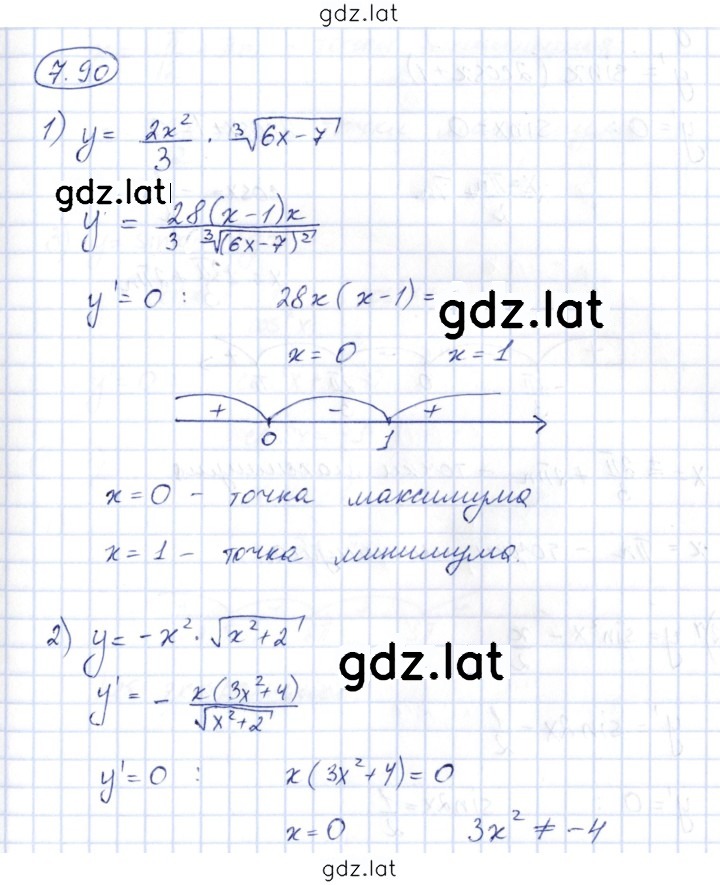 gdz.lat
7.90
1) y = 2x²/3 · ∛(6x-7)
gdz.lat
y' = 28(x-1)x / 3 ∛((6x-7)²)
y' = 0 : 28x(x-1) =
gdz.lat
x = 0 x = 1
+ - +
0 1
x = 0 - точка максимума
x = 1 - точка минимума.
2) y = -x² · √(x²+2)
gdz.lat
y' = - x(3x²+4) / √(x²+2)
y' = 0 : x(3x²+4) = 0
x = 0 3x² ≠ -4
gdz.lat